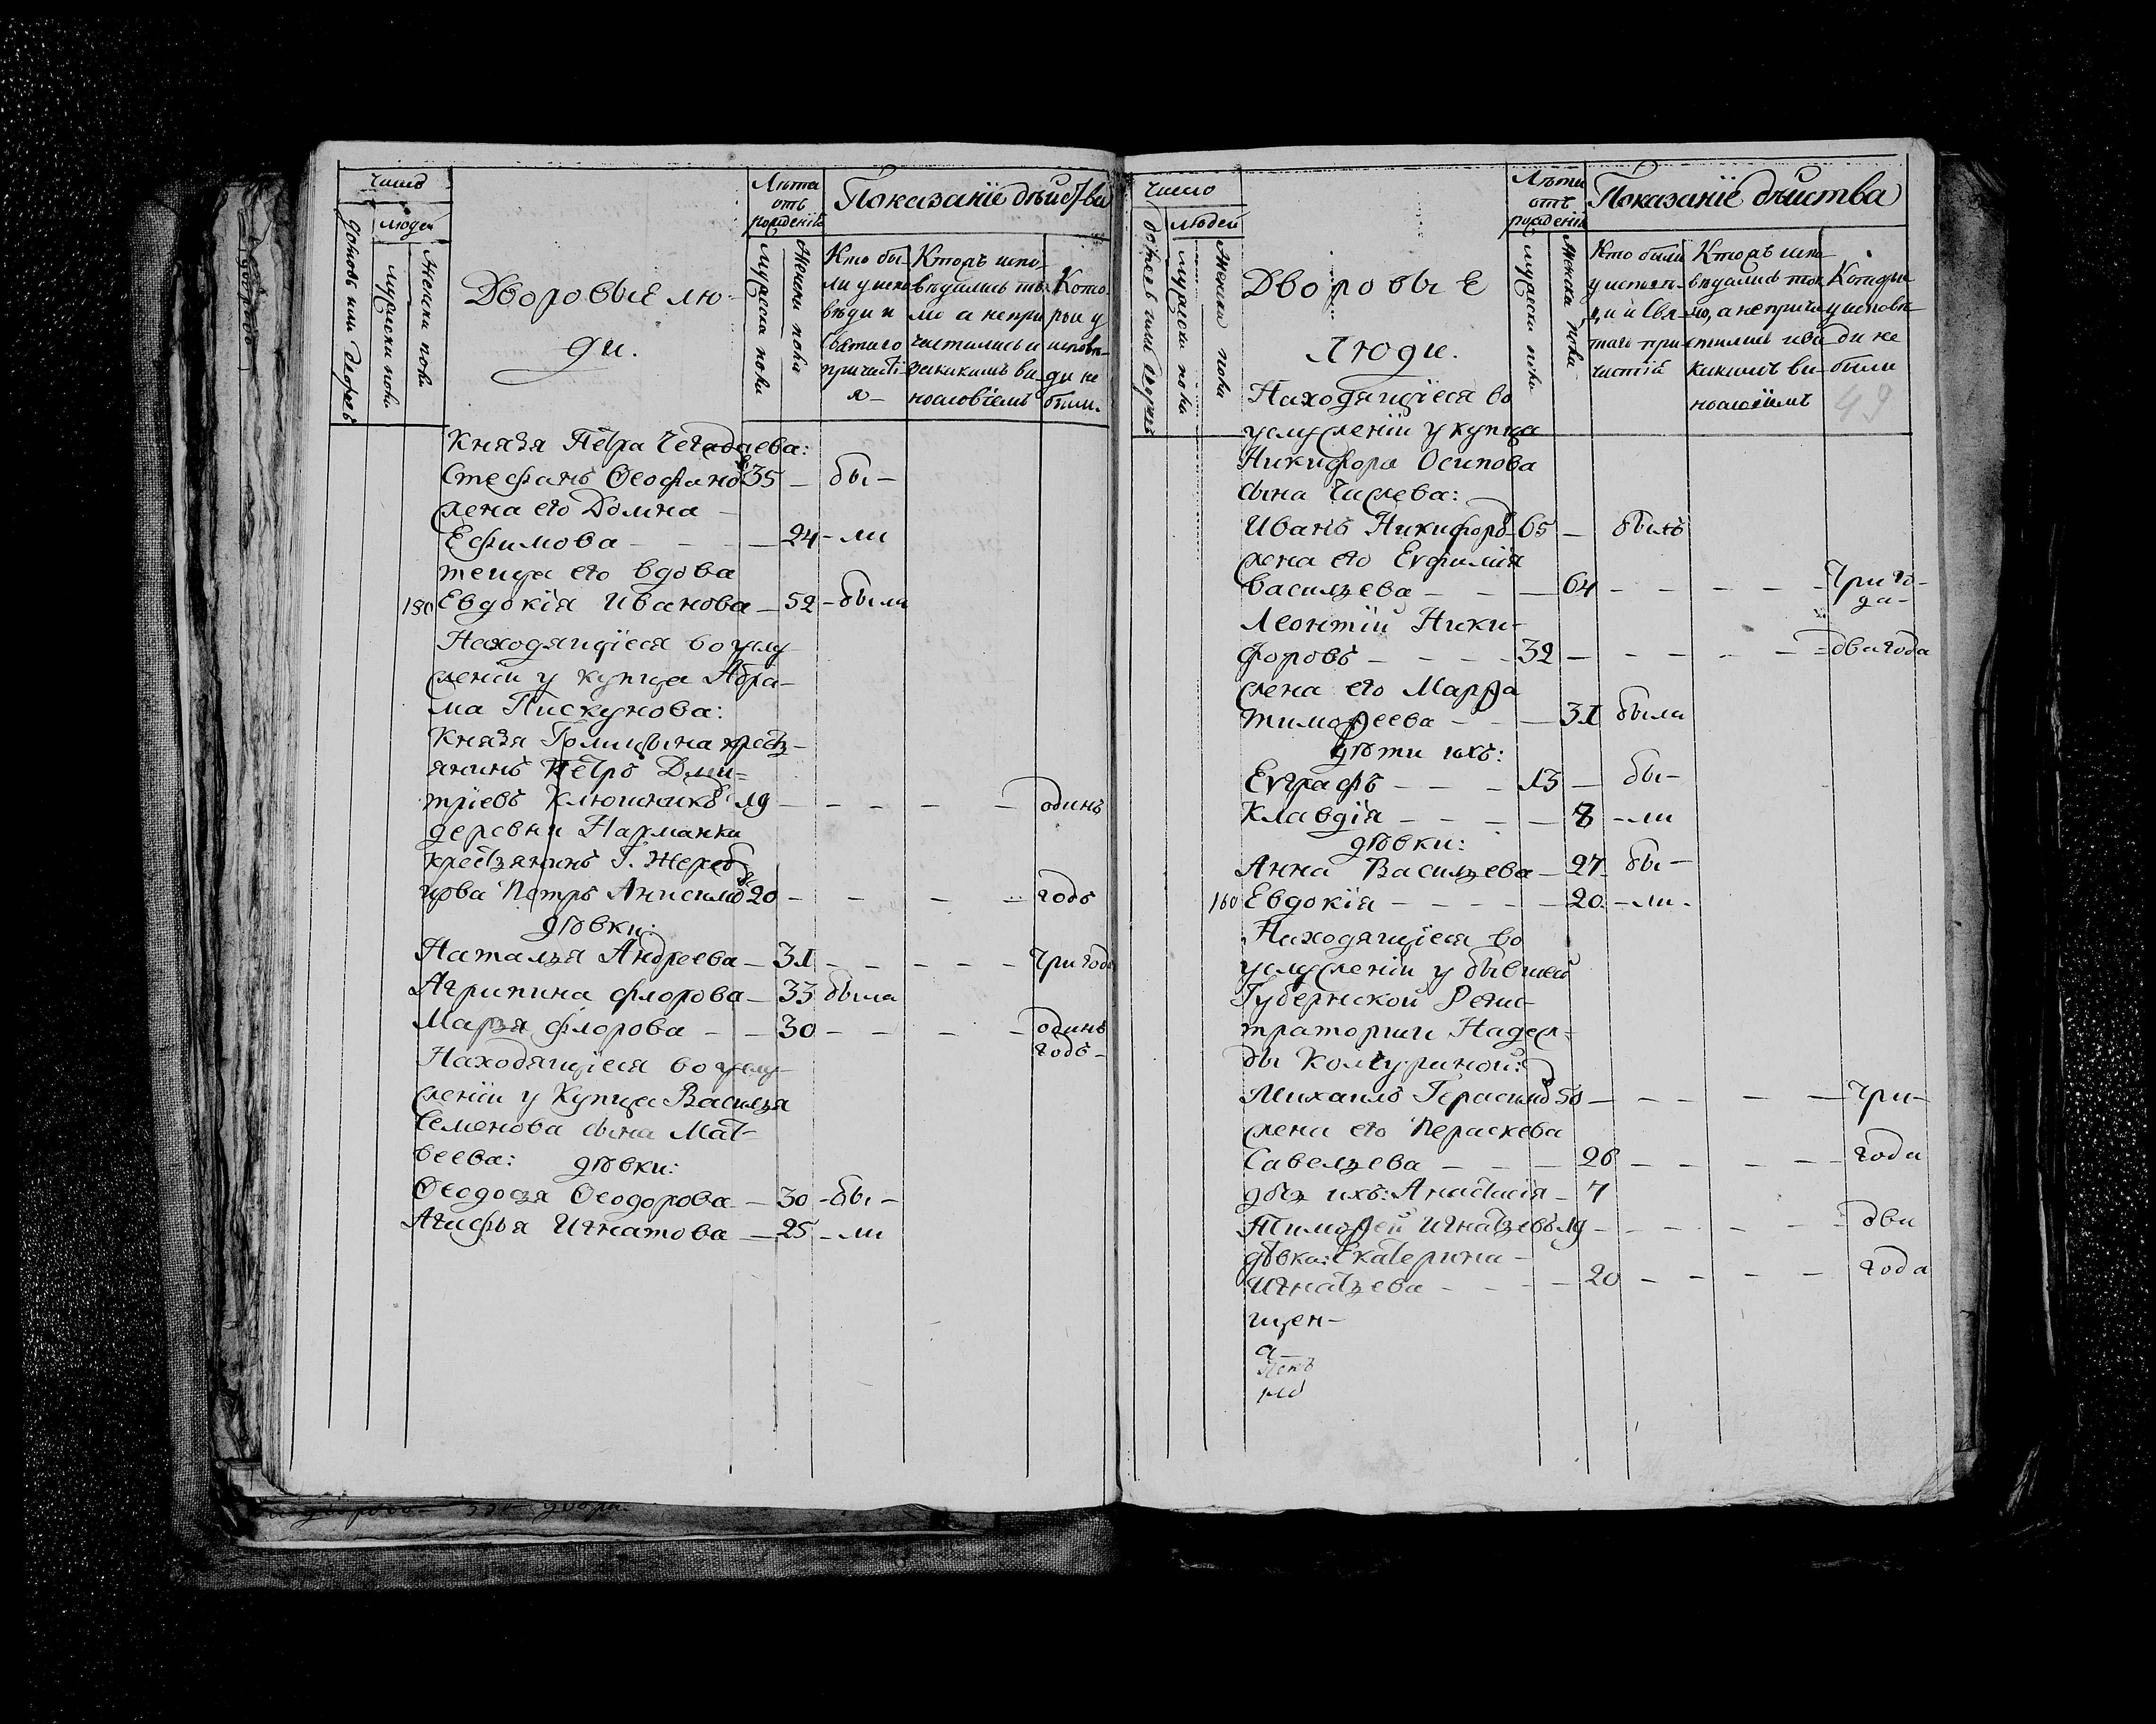 Число
людей
домовъ или дворовъ
мужска пола
женска пола
Дворовые лю-
ди.
Лѣта
отъ
рожденія
мужска пола
женска пола
Показанїе дѣйства
Кто бы-
ли у испо
вѣди и
святаго
причасті-
я
Кто жъ испо-
вѣдались то-
ли а непри
частились и
за какимъ ви-
нословїемъ
Кото
рыи у
исповѣ-
ди не
были.
Князя Пётра Чегадаева:
Стефанъ Ѳеофановъ 35 — бы —
жена его Домна —
Ефимова — — — 24 — ли
теща его вдова
130 Евдокїя Иванова — 52 — была
Находящїеся во услу
женїи у купца Абра-
ма Пискунова:
Князя Голицына крестъ-
янинъ Пётръ Дми-
трїевъ Ключникъ 19 — — — — — одинъ
деревни Нарманки
крестьянинъ Г. Жереб
цова Петръ Анисимовъ 20 — — — — годъ
дѣвки:
Наталья Андреева — 31 — — — — — три года
Агрипина Флорова — 33 была
Марья Флорова — — 30 — — — — одинъ
годъ —
Находящїеся во услу
женїи у Купца Василья
Семенова сына Мат-
веева: дѣвки:
Ѳеодосья Ѳеодорова — 30 — бы —
Агафья Игнатова — 25 — ли
Число
людей
мужска пола
женска пола
Дворовые
Люди.
Лѣта
отъ
рожденія
мужска пола
женска пола
Показанїе дѣйства
Кто были
у исповѣ-
ди и свя-
таго при-
частїя
Кто жъ испо-
вѣдались то-
ко, а неприча
стились и за
какимъ ви-
нословїемъ
Которы
у исповѣ
ди не
были
49
Находящїеся во
услуженїи у купца
Никифора Осипова
сына Чижева:
Иванъ Никифоровъ 65 — былъ
жена его Евфимія
Васильева — — — 64 — — — — — три го-
да —
Леонтїй Ники-
форовъ — — — — 32 — — — — — два года
жена его Марѳа
Тимоѳеева — — — 31 была
дѣти ихъ:
Евграфъ — — — 13 — бы —
Клавдїя — — — — — 8 — ли
дѣвки:
Анна Васильева — 27 бы —
160 Евдокїя — — — — — 20 — ли.
Находящїеся во
услуженїи у бывшей
Губернской Регис-
траторши Надеж-
ды Комчуриной:
Михаилъ Герасимовъ 50 — — — — — три —
жена его Пераскева
Савельева — — — 26 — — — — — года
дочь ихъ: Анастасїя — 7
Тимоѳей Игнатьевъ 19 — — — — — два
дѣвка: Екатерина —
Игнатьева — — — — 20 — — — — года
щен —